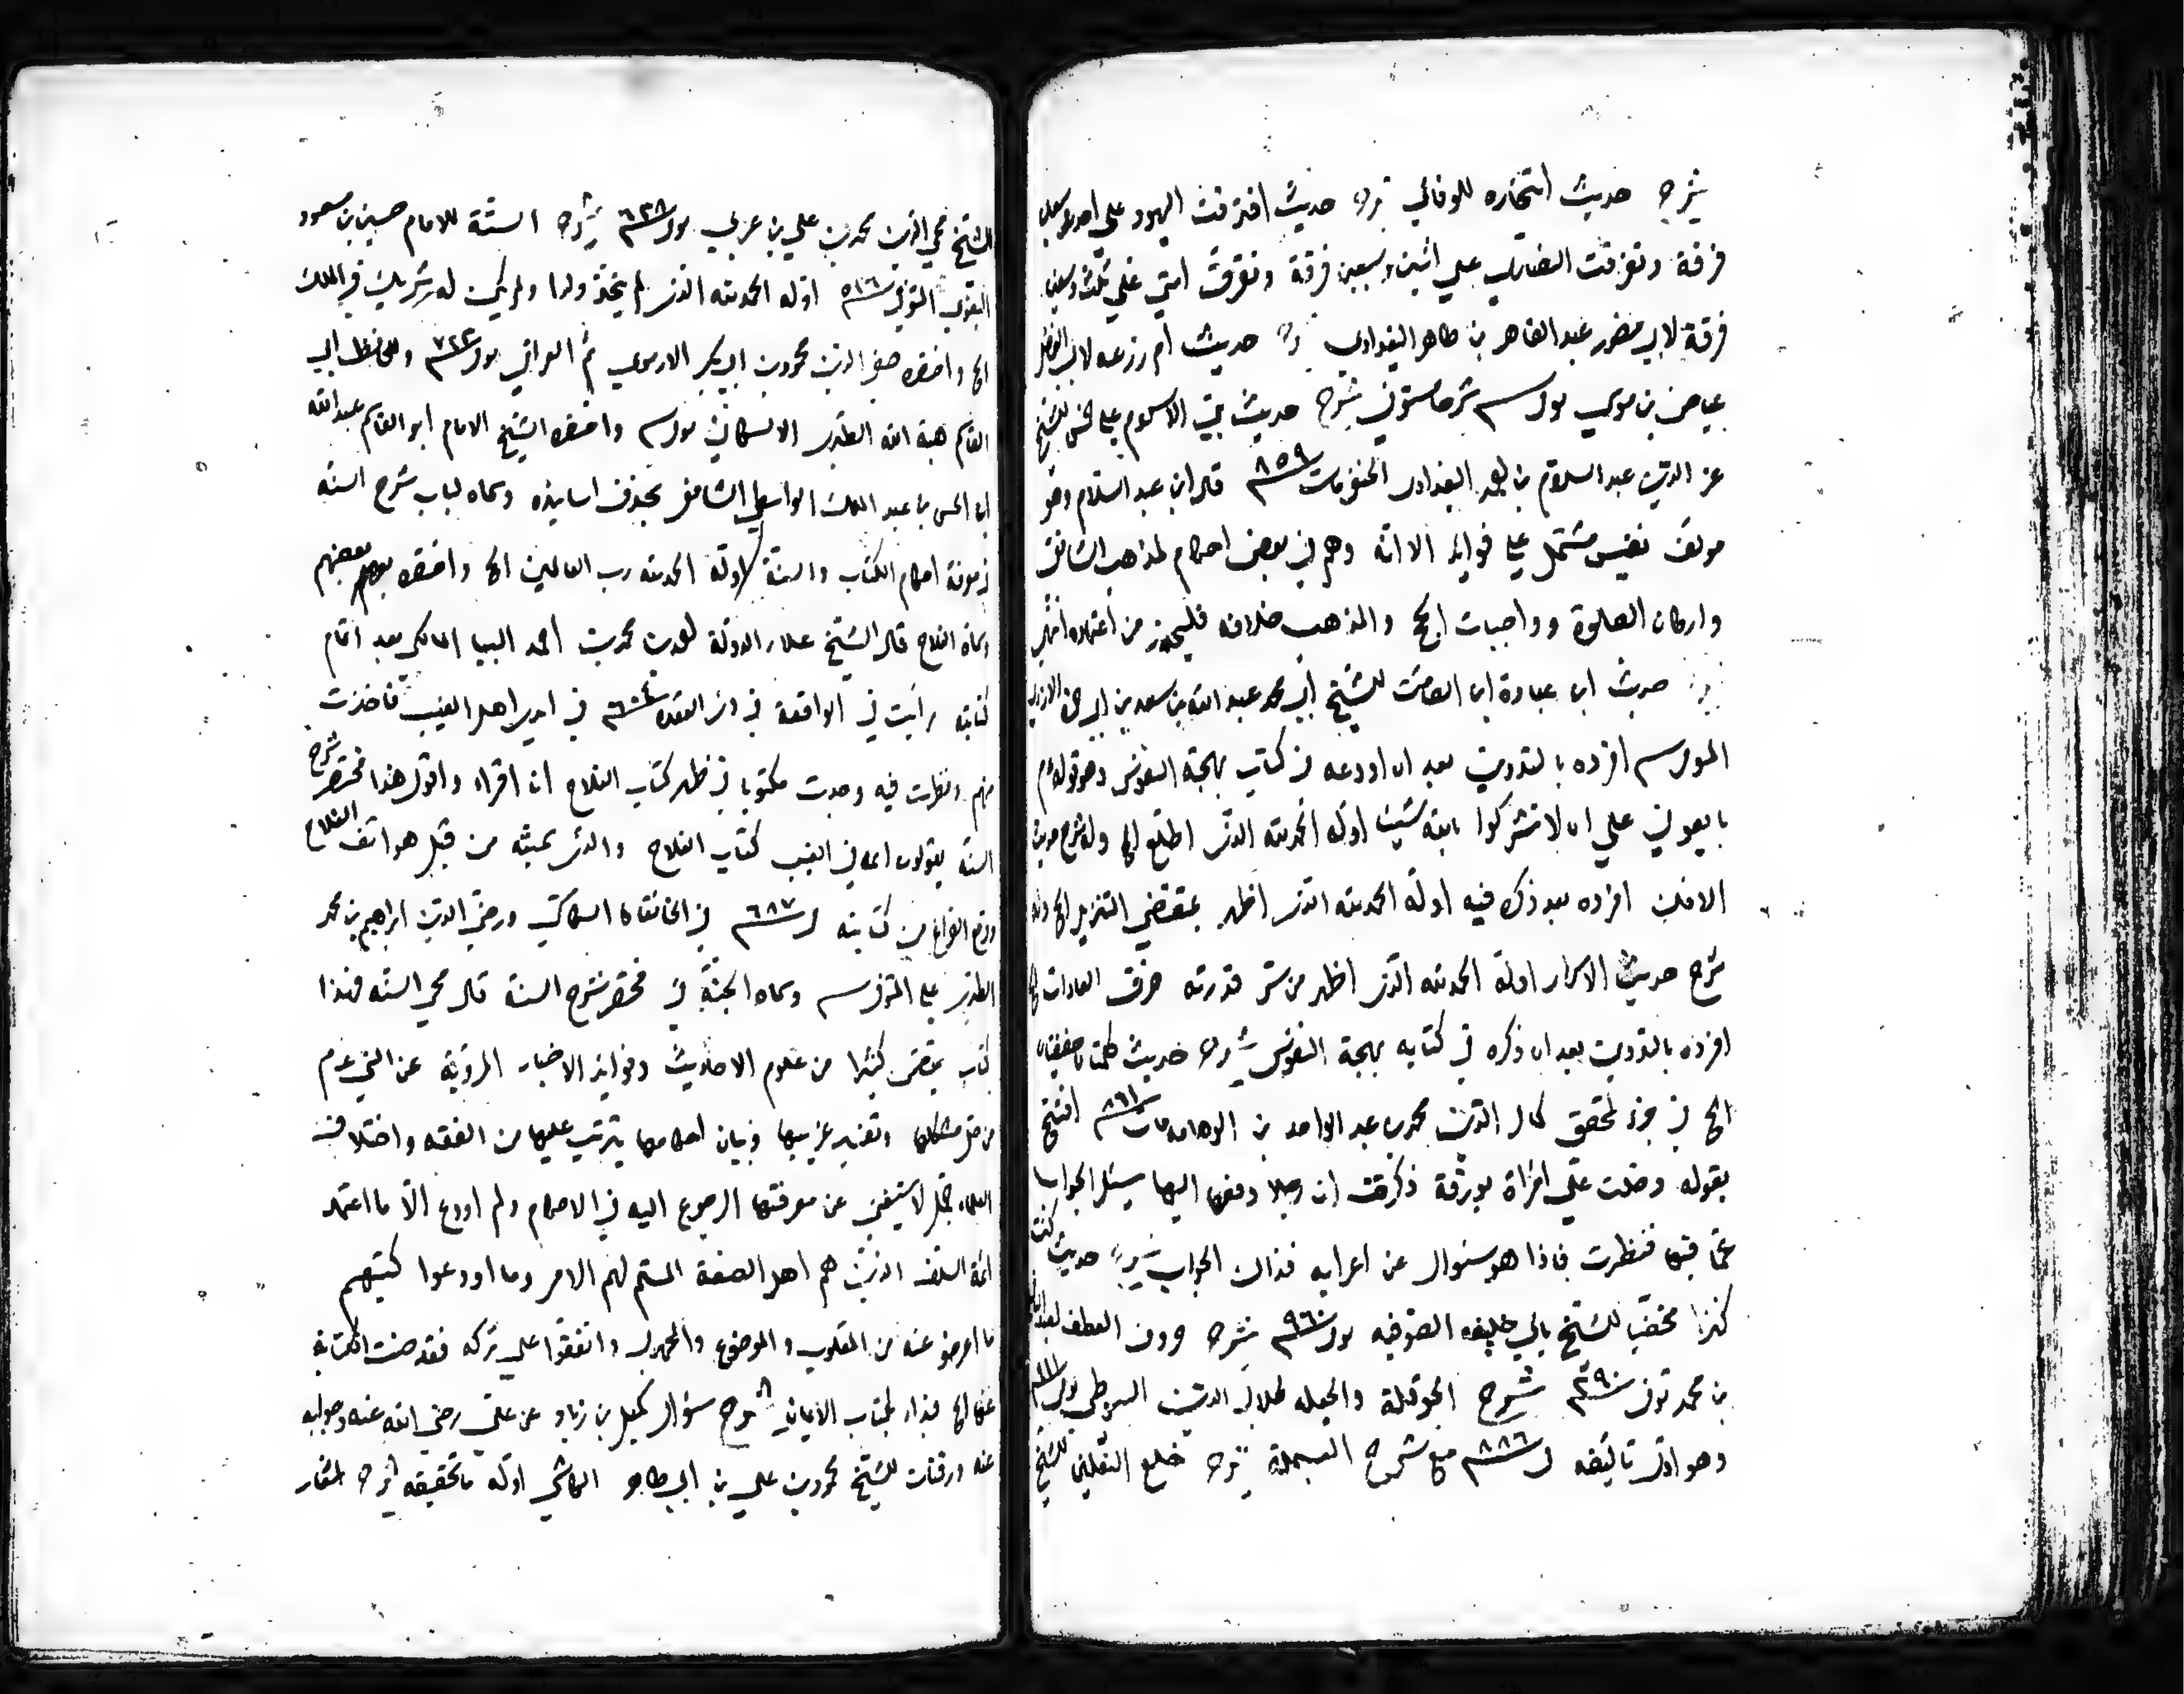 شرح حديث استخاره للوفائي شرح حديث افترقت اليهود على احد وسبعين
فرقة وتفرقت النصارى على اثنين وسبعين فرقة وتفرقت امتي على ثلث وسبعين
فرقة لابي منصور عبد القاهر بن طاهر البغدادي شرح حديث ام زرعه لابي الفضل
عياض بن موسى شرح حديث بني الاسلام على خمس للشيخ
عز الدين عبد السلام بن احمد البغدادي الحنفي مات ٨٥٩ قال ابن عبد السلام وهو
مولف نفيس مشتمل على فوايد الا انه وهم في بعض احكام لمذاهب الشافعي
واركان الصلوة وواجبات الحج والمذهب خلافه فليحذر من اعتماده انتهى
شرح حديث ابن عبادة ابن الصامت للشيخ ابي محمد عبد الله بن سعد بن ابي جمرة الازدي
افرده بالتدوين بعد ان اودعه في كتاب بهجة النفوس وهو قوله عم
بايعوني على ان لا تشركوا بالله شيئا اوله الحمد لله الذي اطلع الخ وله شرح حديث
الافك افرده بعد ذكره فيه اوله الحمد لله الذي اظهر بمقتضى التنزيل الخ وله
شرح حديث الاسراء اوله الحمد لله الذي اظهر من سر قدرته خرق العادات الخ
افرده بالتدوين بعد ان ذكره في كتابه بهجة النفوس شرح حديث كلمتان خفيفتان
الخ في جزء لمحقق كمال الدين محمد بن عبد الواحد بن الهمام مات ٨٦١ افتتح
بقوله دخلت علي امراة بورقة ذكرت ان رجلا دفعها اليها سئل الجواب
عما فيها فنظرت فاذا هو سؤال عن اعرابه فذاك الجواب شرح حديث كنت
كنزا مخفيا للشيخ بالي خليفه الصوفيه ٩٦٠ شرح حروف العطف
بن محمد ٣٩٠ شرح الحوقلة والحيعلة لجلال الدين السيوطي ٩١١
وهو اول تاليفه ٨٨٦ مع شرح البسملة شرح خلع النعلين للشيخ
الشيخ محي الدين محمد بن علي بن عربي ٦٣٨ شرح السنة للامام حسين بن مسعود
البغوي المتوفي ٥١٦ اوله الحمد لله الذي لم يتخذ ولدا ولم يكن له شريك في الملك
الخ واختصره صفي الدين محمود بن ابي بكر الارموي ثم العراقي ٧٢٣ وللحافظ ابي
القاسم هبة الله الطبري واختصره الشيخ الامام ابو القاسم عبد الله
ابن الحسن بن عبد الملك الواسطي الشافعي بحذف اسانيده وسماه لباب شرح السنه
في معرفة احكام الكتاب والسنة اوله الحمد لله رب العالمين الخ واختصره بعضهم
وسماه الفلاح قال الشيخ علاء الدولة احمد بن محمد بن احمد البيا المالكي بعد اتمام
كتابته رايت في الواقعة في في ايدي اهل الغيب فاخذت
منهم ونظرت فيه وجدت مكتوبا في ظهر كتاب الفلاح ان اقراء واقول هذا مختصر شرح
السنه يقولون له في الغيب كتاب الفلاح والذي سميته من قبل هواتف الفلاح
ووقع الفراغ من كتابته ٦٨٧ في الخانقاه السكاكي ورضي الدين ابراهيم بن محمد
الطبري وسماه الجنة في مختصر شرح السنة قال محي السنه فهذا
كتاب يتضمن كثيرا من علوم الاحاديث وفوايد الاخبار المروية عن النبي عم
من حل مشكلها وتفسير غريبها وبيان احكامها يترتب عليها من الفقه واختلاف
العلماء جمل لا يستغنى عن معرفتها الرجوع اليه في الاحكام ولم اودع الا ما اعتمد
ائمة السلف الذين هم اهل الصنعة المسلم لهم الامر وما اودعوا كتبهم
ما اعرضوا عنه من المقلوب والموضوع والمجهول واتفقوا على تركه فقد صنت الكتاب
عنها الخ فبداء بكتاب الايمان شرح سؤال كميل بن زياد عن علي رضي الله عنه وجوابه
عنه ورقتان للشيخ محمود بن علي بن ابي طاهر الكاشي اوله ما تحقيقه